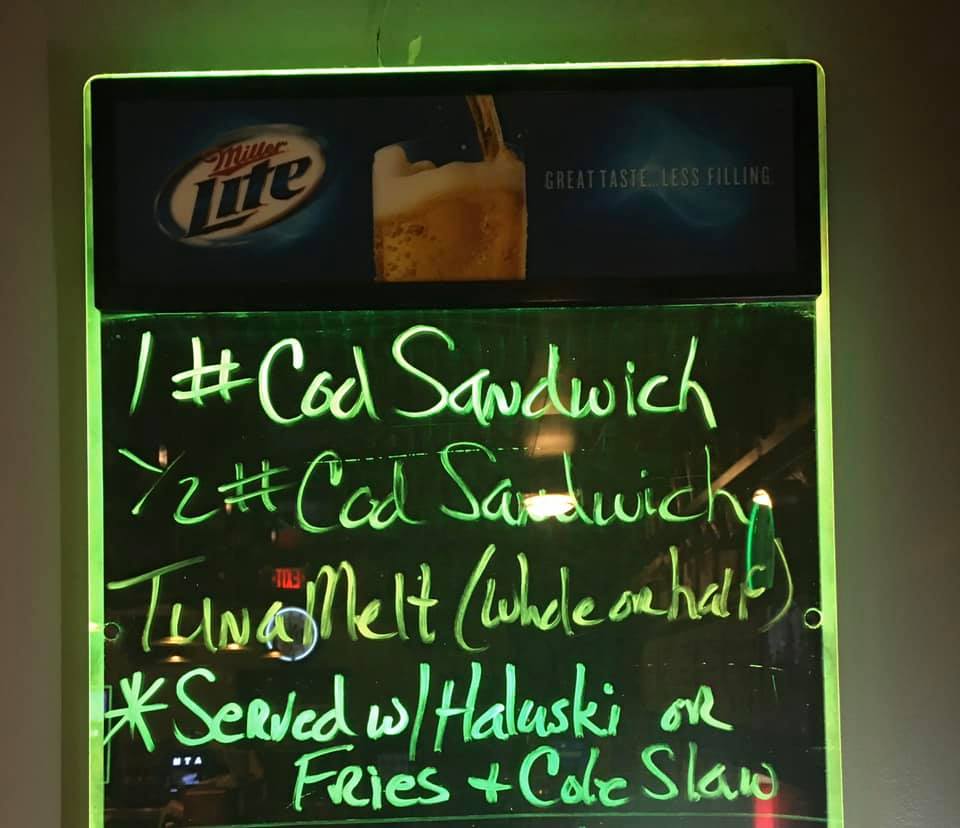 Miller
Lite
GREAT TASTE...LESS FILLING.
1 # Cod Sandwich
1/2 # Cod Sandwich
Tuna Melt (Whole or half)
* Served w/ Haluski or
Fries + Cole Slaw